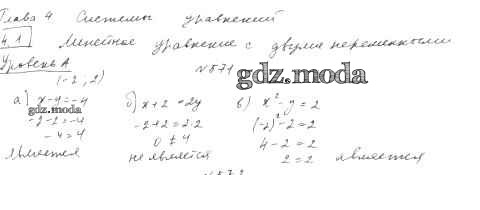 Глава 4 Системы уравнений
4.1 Линейное уравнение с двумя переменными
Уровень А
(-2, 2) №871
gdz.moda
а) x-y=-4 б) x+2=2y в) x²-y=2
gdz.moda
-2-2=-4 -2+2=2·2 (-2)²-2=2
-4=4 0≠4 4-2=2
является не является 2=2 является